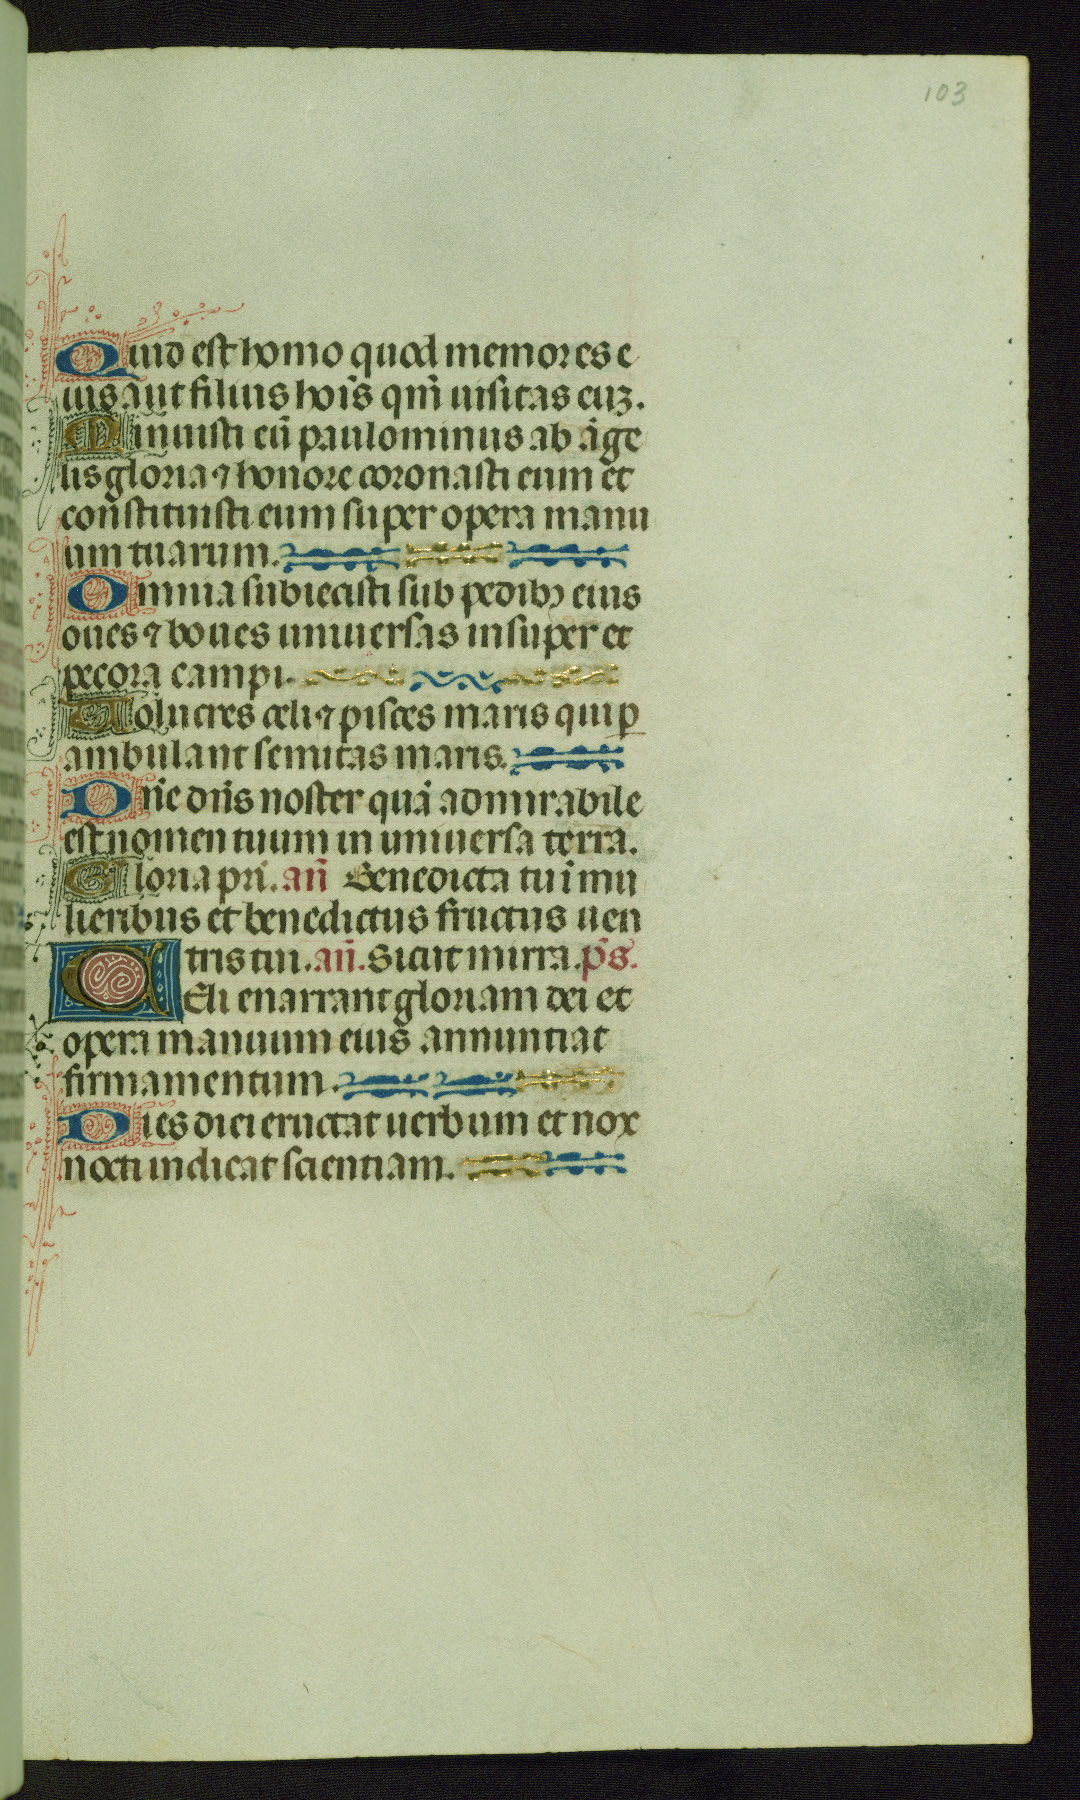 103
Quid est homo quod memor es e
ius aut filius hoīs qm̄ uisitas euꝫ.
Minuisti eū paulominus ab āge
lis gloria ⁊ honore coronasti eum et
coñstituisti eum super opera manu
um tuarum.
Omnia subiecisti sub pedibꝫ eius
oues ⁊ boues uniuersas insuper et
pecora campi.
Uolucres celi ⁊ pisces maris qui ꝑ
ambulant semitas maris.
Dñe dñs noster quā admirabile
est nomen tuum in uniuersa terra.
Gloria pri. añ Benedicta tu ī mu
lieribus et benedictus fructus uen
tris tui. añ. Sicut mirra. p̄s.
Celi enarrant gloriam dei et
opera manuum eius annuntiat
firmamentum.
Dies diei eructat uerbum et nox
nocti indicat scientiam.